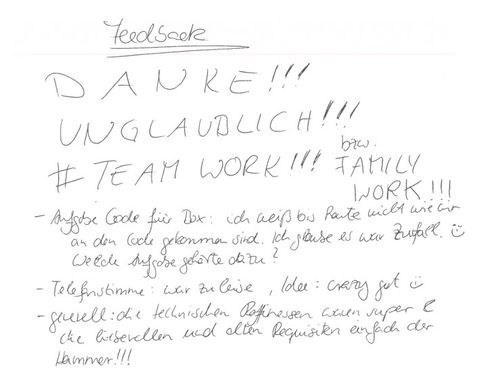 Feedback
DANKE!!!
UNGLAUBLICH!!!
# TEAM WORK!!! bzw. FAMILY
WORK!!!
- Aufgabe Code für Box: ich weiß bis heute nicht wie wir
an den Code gekommen sind. Ich glaube es war Zufall. ☺
Welche Aufgabe gehörte dazu?
- Telefonstimme: war zu leise, Idee: crazy gut ☺
- generell: die technischen Raffinessen waren super &
die liebevollen und alten Requisiten einfach der
Hammer!!!